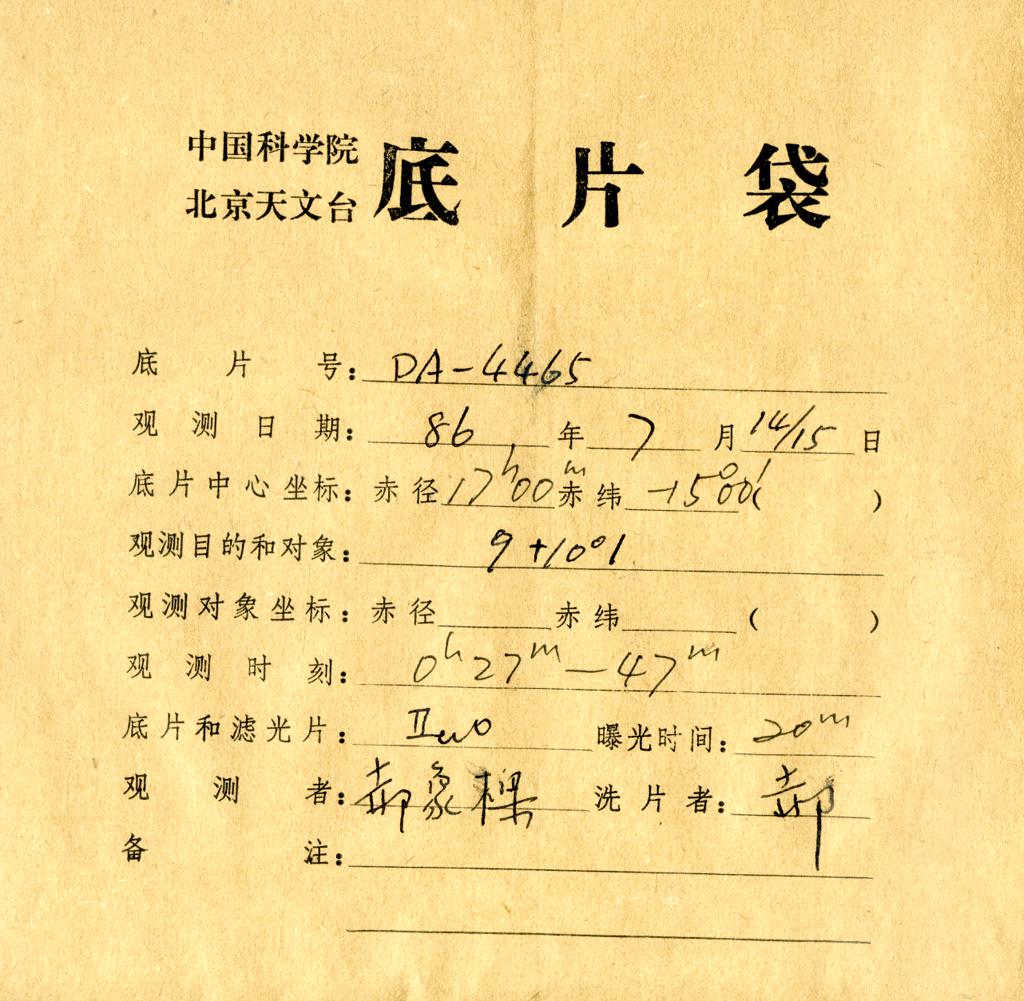 中国科学院
北京天文台 底片袋
底片号：DA-4465
观测日期：86年7月14/15日
底片中心坐标：赤径17ʰ00ᵐ赤纬-15°00′( )
观测目的和对象：9+10°1
观测对象坐标：赤径 赤纬 ( )
观测时刻：0ʰ27ᵐ—47ᵐ
底片和滤光片： 曝光时间：20ᵐ
观测者：郝象樑 洗片者：郝
备注：